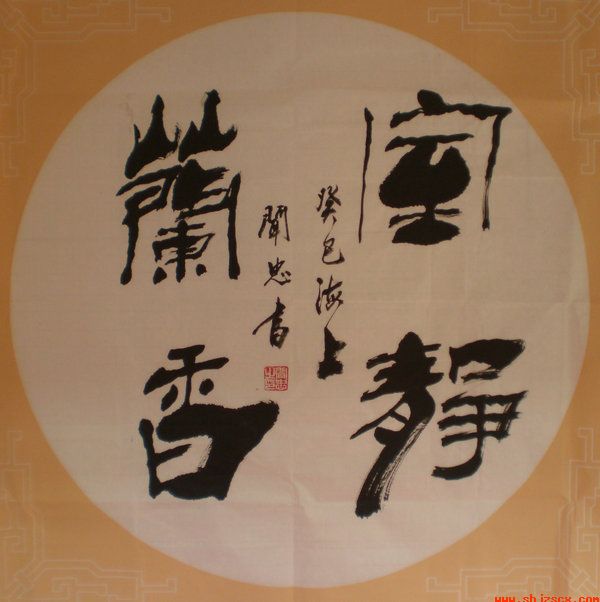 室靜
蘭香
癸巳海上
聞忠書
www.shjzscx.com